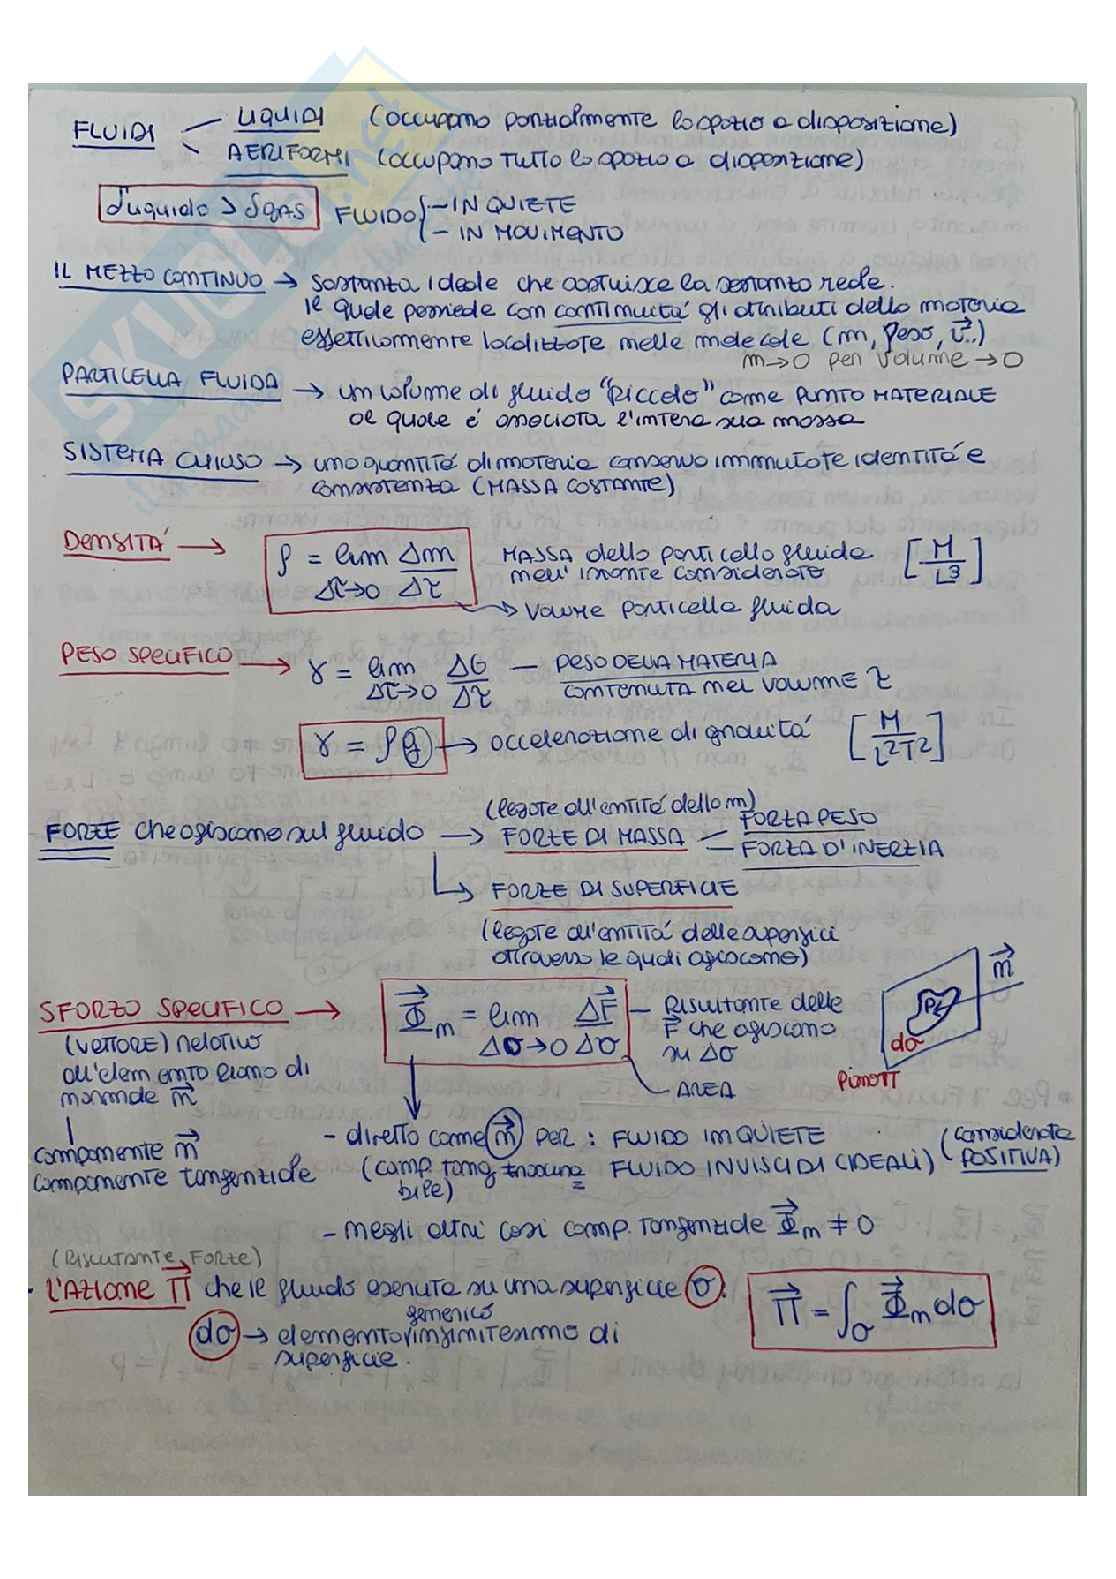 FLUIDI
LIQUIDI (occupano parzialmente lo spazio a disposizione)
AERIFORMI (occupano TUTTO lo spazio a disposizione)
δliquido > δgas FLUIDO { - IN QUIETE
- IN MOVIMENTO
IL MEZZO CONTINUO → sostanza ideale che sostituisce la sostanza reale.
la quale possiede con continuità gli attributi della materia
effettivamente localizzate nelle molecole (m, peso, v⃗..)
m→0 per volume →0
PARTICELLA FLUIDA → un volume di fluido "piccolo" come PUNTO MATERIALE
al quale é associata l'intera sua massa
SISTEMA CHIUSO → una quantità di materia conserva immutate identità e
consistenza (MASSA COSTANTE)
DENSITA' → ρ = lim Δm/Δτ Δτ→0 MASSA della particella fluida [M/L³]
nell'istante considerato
→ Volume particella fluida
PESO SPECIFICO → γ = lim ΔG/Δτ Δτ→0 — PESO DELLA MATERIA
CONTENUTA nel VOLUME τ
γ = ρg → accelerazione di gravità [M/L²T²]
(legate all'entità della m)
FORZE che agiscono sul fluido → FORZE DI MASSA
FORZA PESO
FORZA D'INERZIA
↳ FORZE DI SUPERFICIE
(legate all'entità delle superfici
attraverso le quali agiscono)
SFORZO SPECIFICO → Φ⃗n = lim ΔF⃗/Δσ Δσ→0 — Risultante delle
F⃗ che agiscono
su Δσ
— AREA
n⃗
dσ
piano π
(VETTORE) relativo
all'elemento piano di
normale n⃗
componente n⃗
componente tangenziale
- diretto come n⃗ PER : FLUIDO IN QUIETE
(comp. tang. trascura FLUIDO INVISCIDI (IDEALI)
bile)
(considerata
POSITIVA)
- negli altri casi comp. tangenziale Φ⃗n ≠ 0
(Risultante Forze)
- L'AZIONE Π⃗ che le fluido esercita su una superficie σ:
generico
dσ → elemento infinitesimo di
superficie.
Π⃗ = ∫σ Φ⃗n dσ
SKUOLA.net